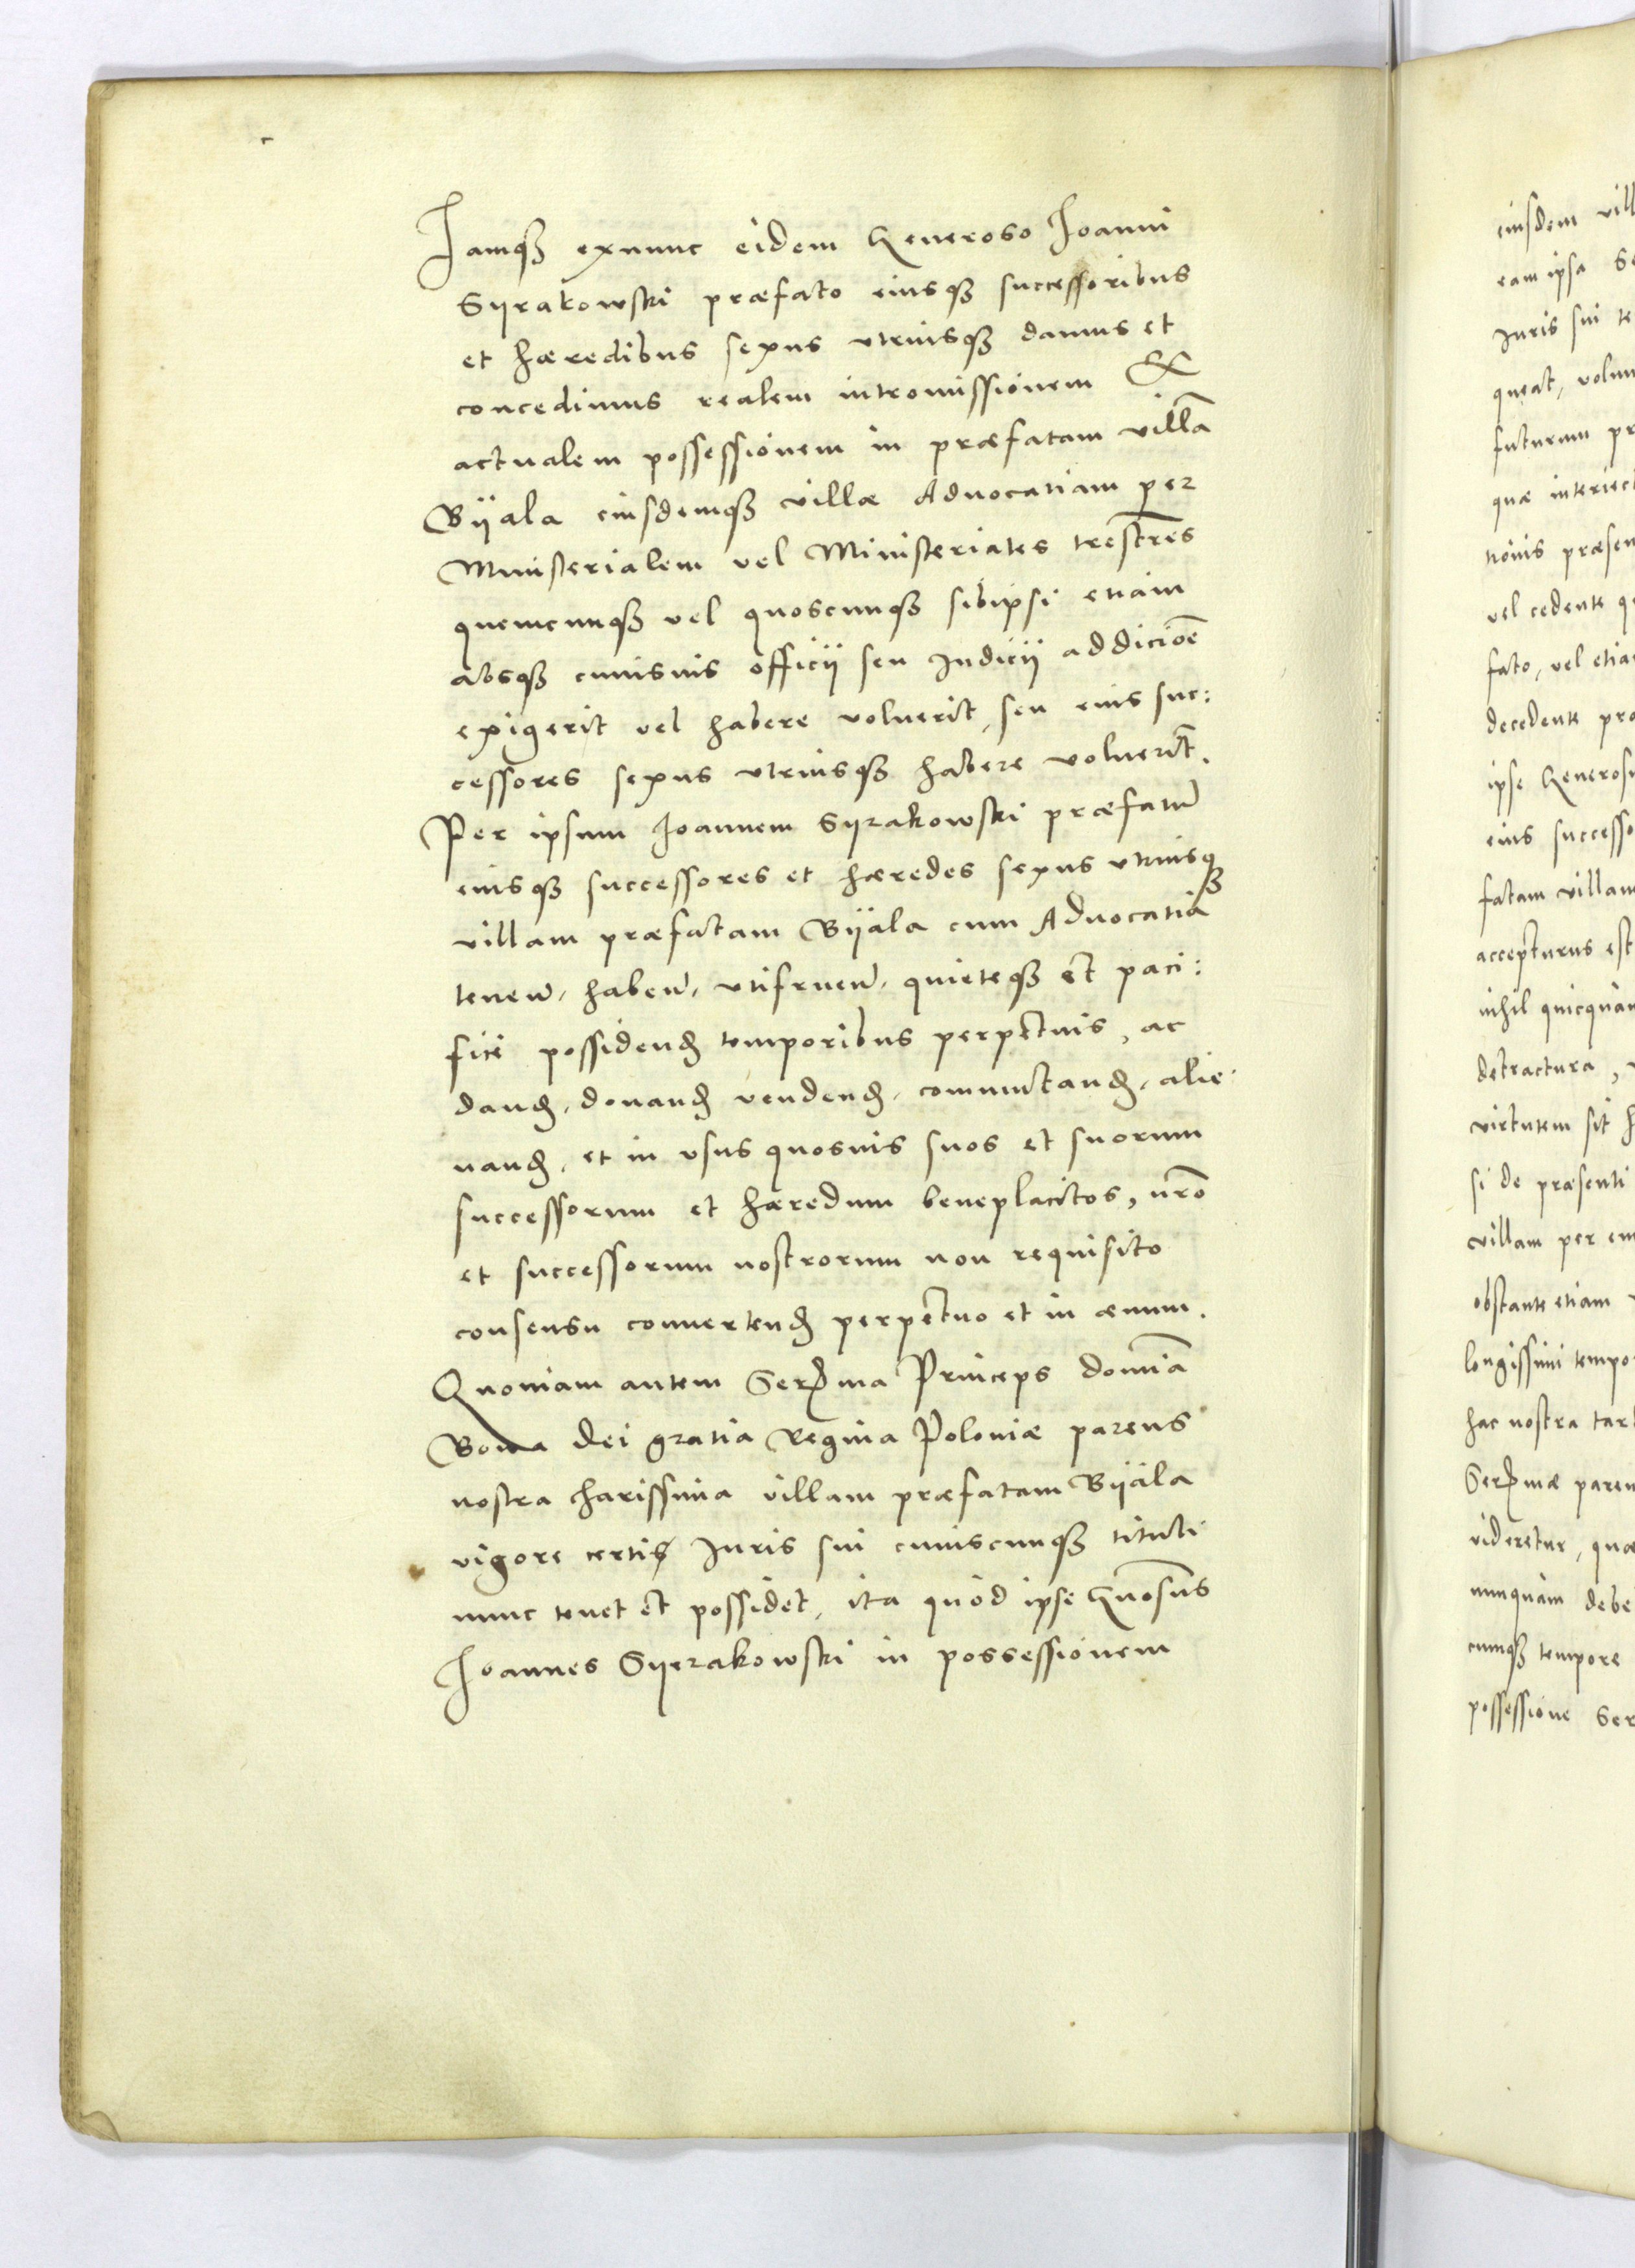 Iamqȝ exnunc eidem Generoso Joanni
Syrakowski præfato eiusqȝ successoribus
et hæredibus sexus vtriusqȝ damus et
concedimus realem intromissionem &
actualem possessionem in præfatam villā
Byala eiusdemqȝ villæ Aduocatiam per
Ministerialem vel Ministeriales trestres
quemcunqȝ vel quoscunqȝ sibipsi etiam
absqȝ cuiusuis officij seu Iudicij addicioē
exigerit vel habere voluerit, seu eius suc:
cessores sexus vtriusqȝ habere voluerīt.
Per ipsum Joannem Syrakowski præfatū
eiusqȝ successores et hæredes sexus vtriusqȝ
villam præfatam Byala cum Aduocatia
tenen̄, haben̄, vtifruen̄, quieteqȝ et paci:
fice possidenď temporibus perpetuis, ac
danď, donanď vendenď, commutanď, alie:
nanď, et in vsus quosuis suos et suorum
successorum et hæredum beneplacitos, nr̄o
et successorum nostrorum non requisito
consensu conuertenď perpetuo et in æuum.
Quoniam autem Serma Princeps domīa
Bona dei gratia Regina Poloniæ parens
nostra charissima villam præfatam Byala
vigore certis Iuris sui cuiuscunqȝ tituli
nunc tenet et possidet, ita quòd ipse Gnōsus
Joannes Syerakowski in possessionem
eiusdem vill
eam ipsa Se
Iuris sui te
queat, volum
futurum pr
quæ interiect
tionis præsen
vel cedente q
fato, vel etia
decedente pra
ipse Generosu
eius successo
fatam villam
accepturus est
nihil quicquam
detractura,
virtutem sit h
si de præsenti
villam per em
obstante etiam
longissimi tempo
hac nostra tar
Sermæ paren
videretur, quæ
nunquam debe
cunqȝ tempore
possessione Ser